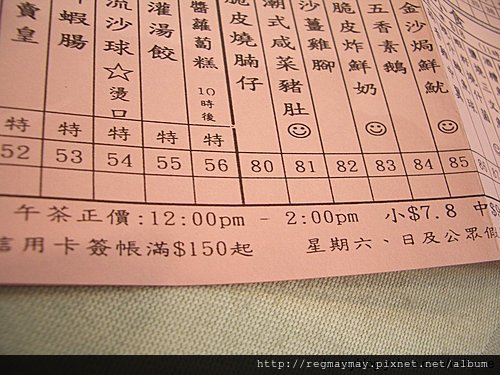 賣皇
蝦腸
流沙球☆燙口
灌湯餃
醬蘿蔔糕 10時後
脆皮燒腩仔
潮式咸菜豬肚☺
沙薑雞腳
脆皮炸鮮奶☺
五香素鵝
金沙焗鮮魷☺
特 特 特 特 特
52 53 54 55 56 80 81 82 83 84 85
午茶正價:12:00pm - 2:00pm 小$7.8 中
信用卡簽帳滿$150起 星期六、日及公眾假
http://regmaymay.pixnet.net/album